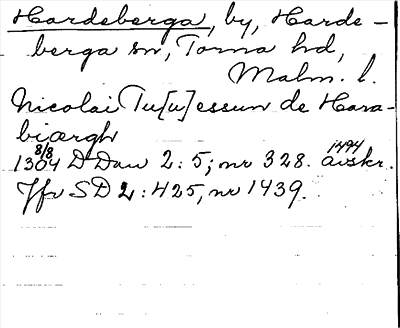 Hardeberga, by, Harde-
berga sn, Torna hd,
Malm. l.
Nicolai Tu[u]essun de Hara-
biærgh
1304 8/8 D Dan 2:5; nr 328. avskr. 1494
Jfr SD 2:425, nr 1439.